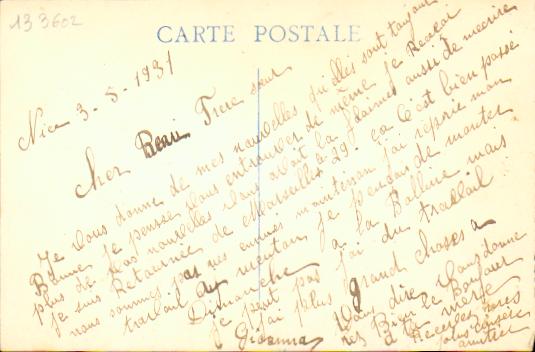 133602
CARTE POSTALE
Nice 3-5-1931
Cher Beau Frere
Je vous donne de mes nouvelles qu'elles sont toujours
Bonne je pense vous entrouver de même je Recoi
plus de vos nouvelles vous avoit la flaime aussi de mecrire
je suis Retournée de Marseilles le 29. ca c'est bien passé
nous sommes pas ennuié maintenan j'ai repris mon
travail au mentan je pendais de monter
Dimanche a la Bolline mais
je peut pas j'ai du travail
j'ai plus grand chases a
Vous dire Vous donne
Bien le Bonjour
a la mere
Recevez
plus
amitier
Giovanna